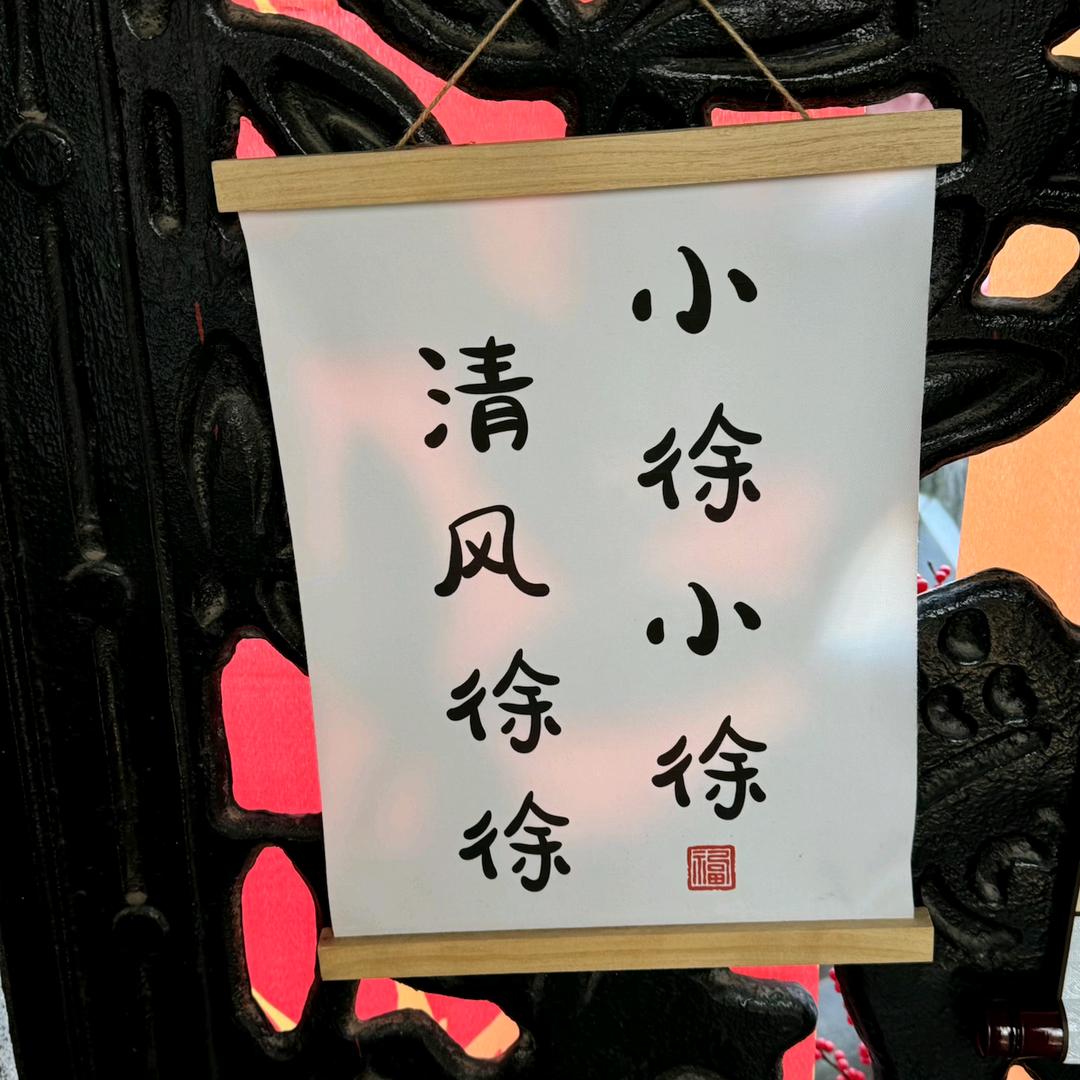 小徐小徐
福
清风徐徐